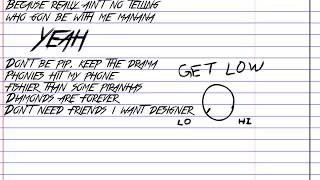 BECAUSE REALLY AIN'T NO TELLING
WHO GON BE WITH ME MANANA
YEAH
DON'T BE PIP, KEEP THE DRAMA
PHONIES HIT MY PHONE
FISHIER THAN SOME PIRANHAS
DIAMONDS ARE FOREVER
DON'T NEED FRIENDS I WANT DESIGNER
GET LOW
LO HI